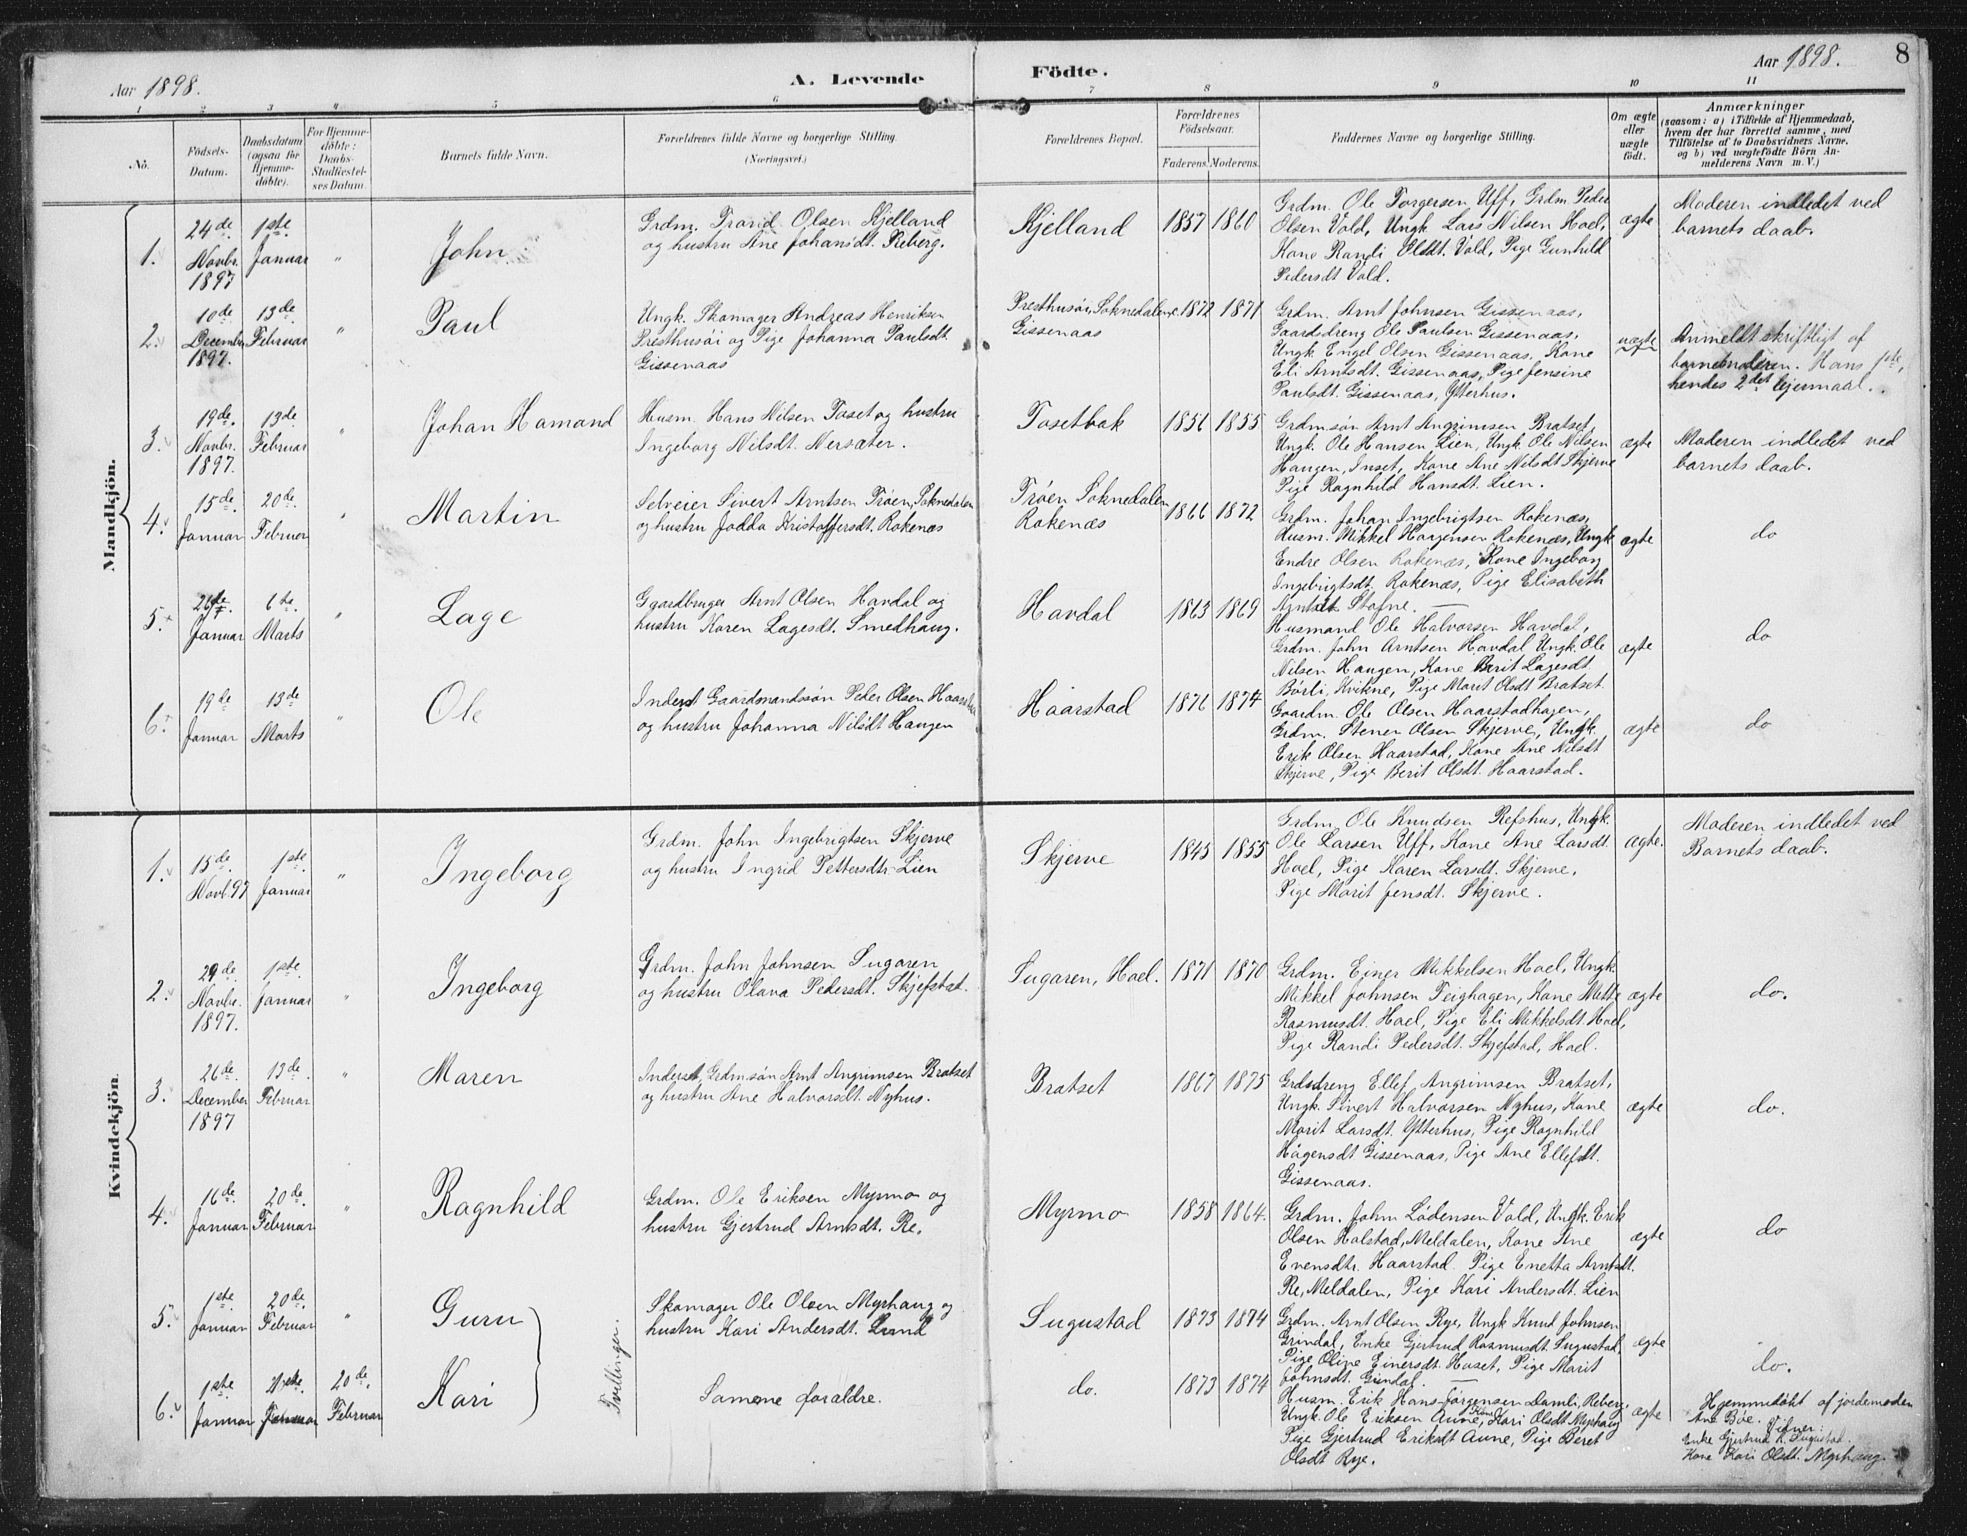 8
Aar 1898.
A. Levende
Födte.
Aar 1898.
1 2 3 4 5 6 7 8 9 10 11
No.
Födsels-
Datum.
Daabsdatum
(ogsaa for
Hjemme-
döbte).
For Hjemme-
döbte:
Daabs-
Stadfæstel-
ses Datum.
Barnets fulde Navn.
Forældrenes fulde Navne og borgerlige Stilling.
(Næringsvei.)
Forældrenes Bopæl.
Forældrenes
Födselsaar.
Faderens. Moderens.
Faddernes Navne og borgerlige Stilling.
Om ægte
eller
uægte
födt.
Anmærkninger
(saasom: a) i Tilfælde af Hjemmedaab,
hvem der har forrettet samme, med
Tilföielse af to Daabsvidners Navne,
og b) ved uægtefödte Börn An-
melderens Navn m. V.)
Mandkjön.
1.
24de
Novbr.
1897
1ste
Januar
"
John
Grdm. Trond Olsen Kjelland
og hustru Ane Johansdt. Reberg.
Kjelland
1857
1860
Grdm. Ole Torgersen Uff, Grdm. Peder
Olsen Vold, Ungk Lars Nilsen Hoel,
Kone Randi Olsdt. Vold, Pige Gunhild
Pedersdt Vold.
ægte
Moderen indledet ved
barnets daab.
2.
10de
December
1897.
13de
Februar
"
Paul
Ungk. Skomager Andreas Henriksen
Presthusøi og Pige Johanna Paulsdt
Gissenaas
Presthusøi, Soknedalen
Gissenaas
1872
1871
Grdm. Arnt Johnsen Gissenaas,
Gaardsdreng Ole Paulsen Gissenaas,
Ungk Engel Olsen Gissenaas, Kone
Eli Arntsdt. Gissenaas, Pige Jensine
Paulsdt. Gissenaas, Ytterhus.
uægte
Anmeldt skriftligt af
barnemoderen. Hans 1ste,
hendes 2det lejermaal.
3.
19de.
Novbr.
1897.
13de
Februar
"
Johan Hamond
Husm. Hans Nilsen Toset og hustru
Ingeborg Nilsdt. Nersæter.
Tosetbak
1856
1855
Grdm.søn Arnt Angrimsen Bratset,
Ungk. Ole Hansen Lien, Ungk Ole Nilsen
Haugen, Inset, Kone Ane Nilsdt Skjerve
Pige Ragnhild Hansdt. Lien.
ægte
Moderen indledet ved
barnets daab.
4.
15de.
Januar
20de.
Februar
"
Martin
Selveier Sivert Arntsen Trøen, Soknedalen
og hustru Jodda Kristoffersdt. Rokenæs
Trøen Soknedalen
Rokenæs
1866
1872
Grdm. Johan Ingebrigtsen Rokenæs,
Husm. Mikkel Haagensen Rokenæs, Ungk
Endre Olsen Rokenæs, Kone Ingeborg
Ingebrigtsdt. Rokenæs, Pige Elisabeth
Arntsdt Stafne.
ægte
do
5.
26de.
Januar
6te
Marts
"
Lage
Gaardbruger Arnt Olsen Havdal og
hustru Karen Lagesdt. Smedhaug.
Havdal
1863
1869
Husmand Ole Halvorsen Havdal,
Grdm. John Arntsen Havdal Ungk. Ole
Nilsen Haugen, Kone Berit Lagesdt.
Børli, Kvikne, Pige Marit Olsdt Bratset.
ægte
do
6.
19de
Januar
13de
Marts
"
Ole
Inderst Gaardmandssøn Peder Olsen Haarstad
og hustru Johanna Nilsdt Haugen
Haarstad
1876
1874
Gaardm. Ole Olsen Haarstadhagen,
Grdm. Stener Olsen Skjerve, Ungk.
Erik Olsen Haarstad, Kone Ane Nilsdt
Skjerve, Pige Berit Olsdt. Haarstad.
ægte
do
Kvindekjön.
1.
15de.
Novb. 97
1ste
Januar
"
Ingeborg
Grdm. John Ingebrigtsen Skjerve
og hustru Ingrid Pettersdtr. Lien
Skjerve
1845
1855
Grdm Ole Knudsen Refshus, Ungk.
Ole Larsen Uff, Kone Ane Larsdt.
Hoel, Pige Karen Larsdt. Skjerve,
Pige Marit Jensdt. Skjerve.
ægte.
Moderen indledet ved
Barnets daab.
2.
29de.
Novbr.
1897.
1ste.
Januar
"
Ingeborg
Grdm. John Johnsen Sugaren
og hustru Olava Pedersdt. Skjefstad.
Sugaren, Hoel.
1871
1870
Grdm. Einer Mikkelsen Hoel, Ungk.
Mikkel Johnsen Teighagen, Kone Mette
Rasmusdt. Hoel, Pige Eli Mikkelsdt. Hoel,
Pige Randi Pedersdt. Skjefstad, Hoel.
ægte
do.
3.
26de.
December
1897
13de.
Februar
"
Maren
Inderst, Grdm.søn Arnt Angrimsen Bratset
og hustru Ane Halvorsdt. Nyhus.
Bratset
1867
1875
Grdsdreng Ellef Angrimsen Bratset,
Ungk. Sivert Halvorsen Nyhus, Kone
Marit Larsdt. Ytterhus, Pige Ragnhild
Hågensdt Gissenaas, Pige Ane Ellefsdt.
Gissenaas.
ægte
do.
4.
16de.
Januar
20de.
Februar
"
Ragnhild
Grdm. Ole Eriksen Myrmo og
hustru Gjertrud Arntsdt. Re.
Myrmo
1858
1864.
Grdm. John Lødensen Vold, Ungk. Erik
Olsen Halstad, Meldalen, Kone Ane
Evensdtr. Haarstad. Pige Enetta Arntsdt.
Re, Meldalen, Pige Kari Andersdt. Lien
ægte
do
5.
1ste
Januar
20de.
Februar
"
Guru
Skomager Ole Olsen Myrhaug og
hustru Kari Andersdt. Lund
Sugustad
1873
1874
Grdm. Arnt Olsen Rye, Ungk Knud Johnsen
Grindal, Enke Gjertrud Rasmusdt. Sugustad,
Pige Oline Einersdt. Haset, Pige Marit
Johnsdt. Grindal.
ægte
do.
Tvillinger.
6.
1ste
Januar
Januar
20de.
Februar
Kari
Samme forældre.
do.
1873
1874
Husm. Erik Hans-Jørgensen Damli, Reberg,
Ungk. Ole Eriksen Aune, Kone Kari Olsdt Myrhaug
Pige Gjertrud Eriksdt Aune, Pige Beret
Olsdt Rye.
ægte
Hjemmedøbt af jordemoden
Ane Bøe. Vidner:
Enke Gjertrud R. Sugustad.
Kone Kari Olsdt. Myrhaug.